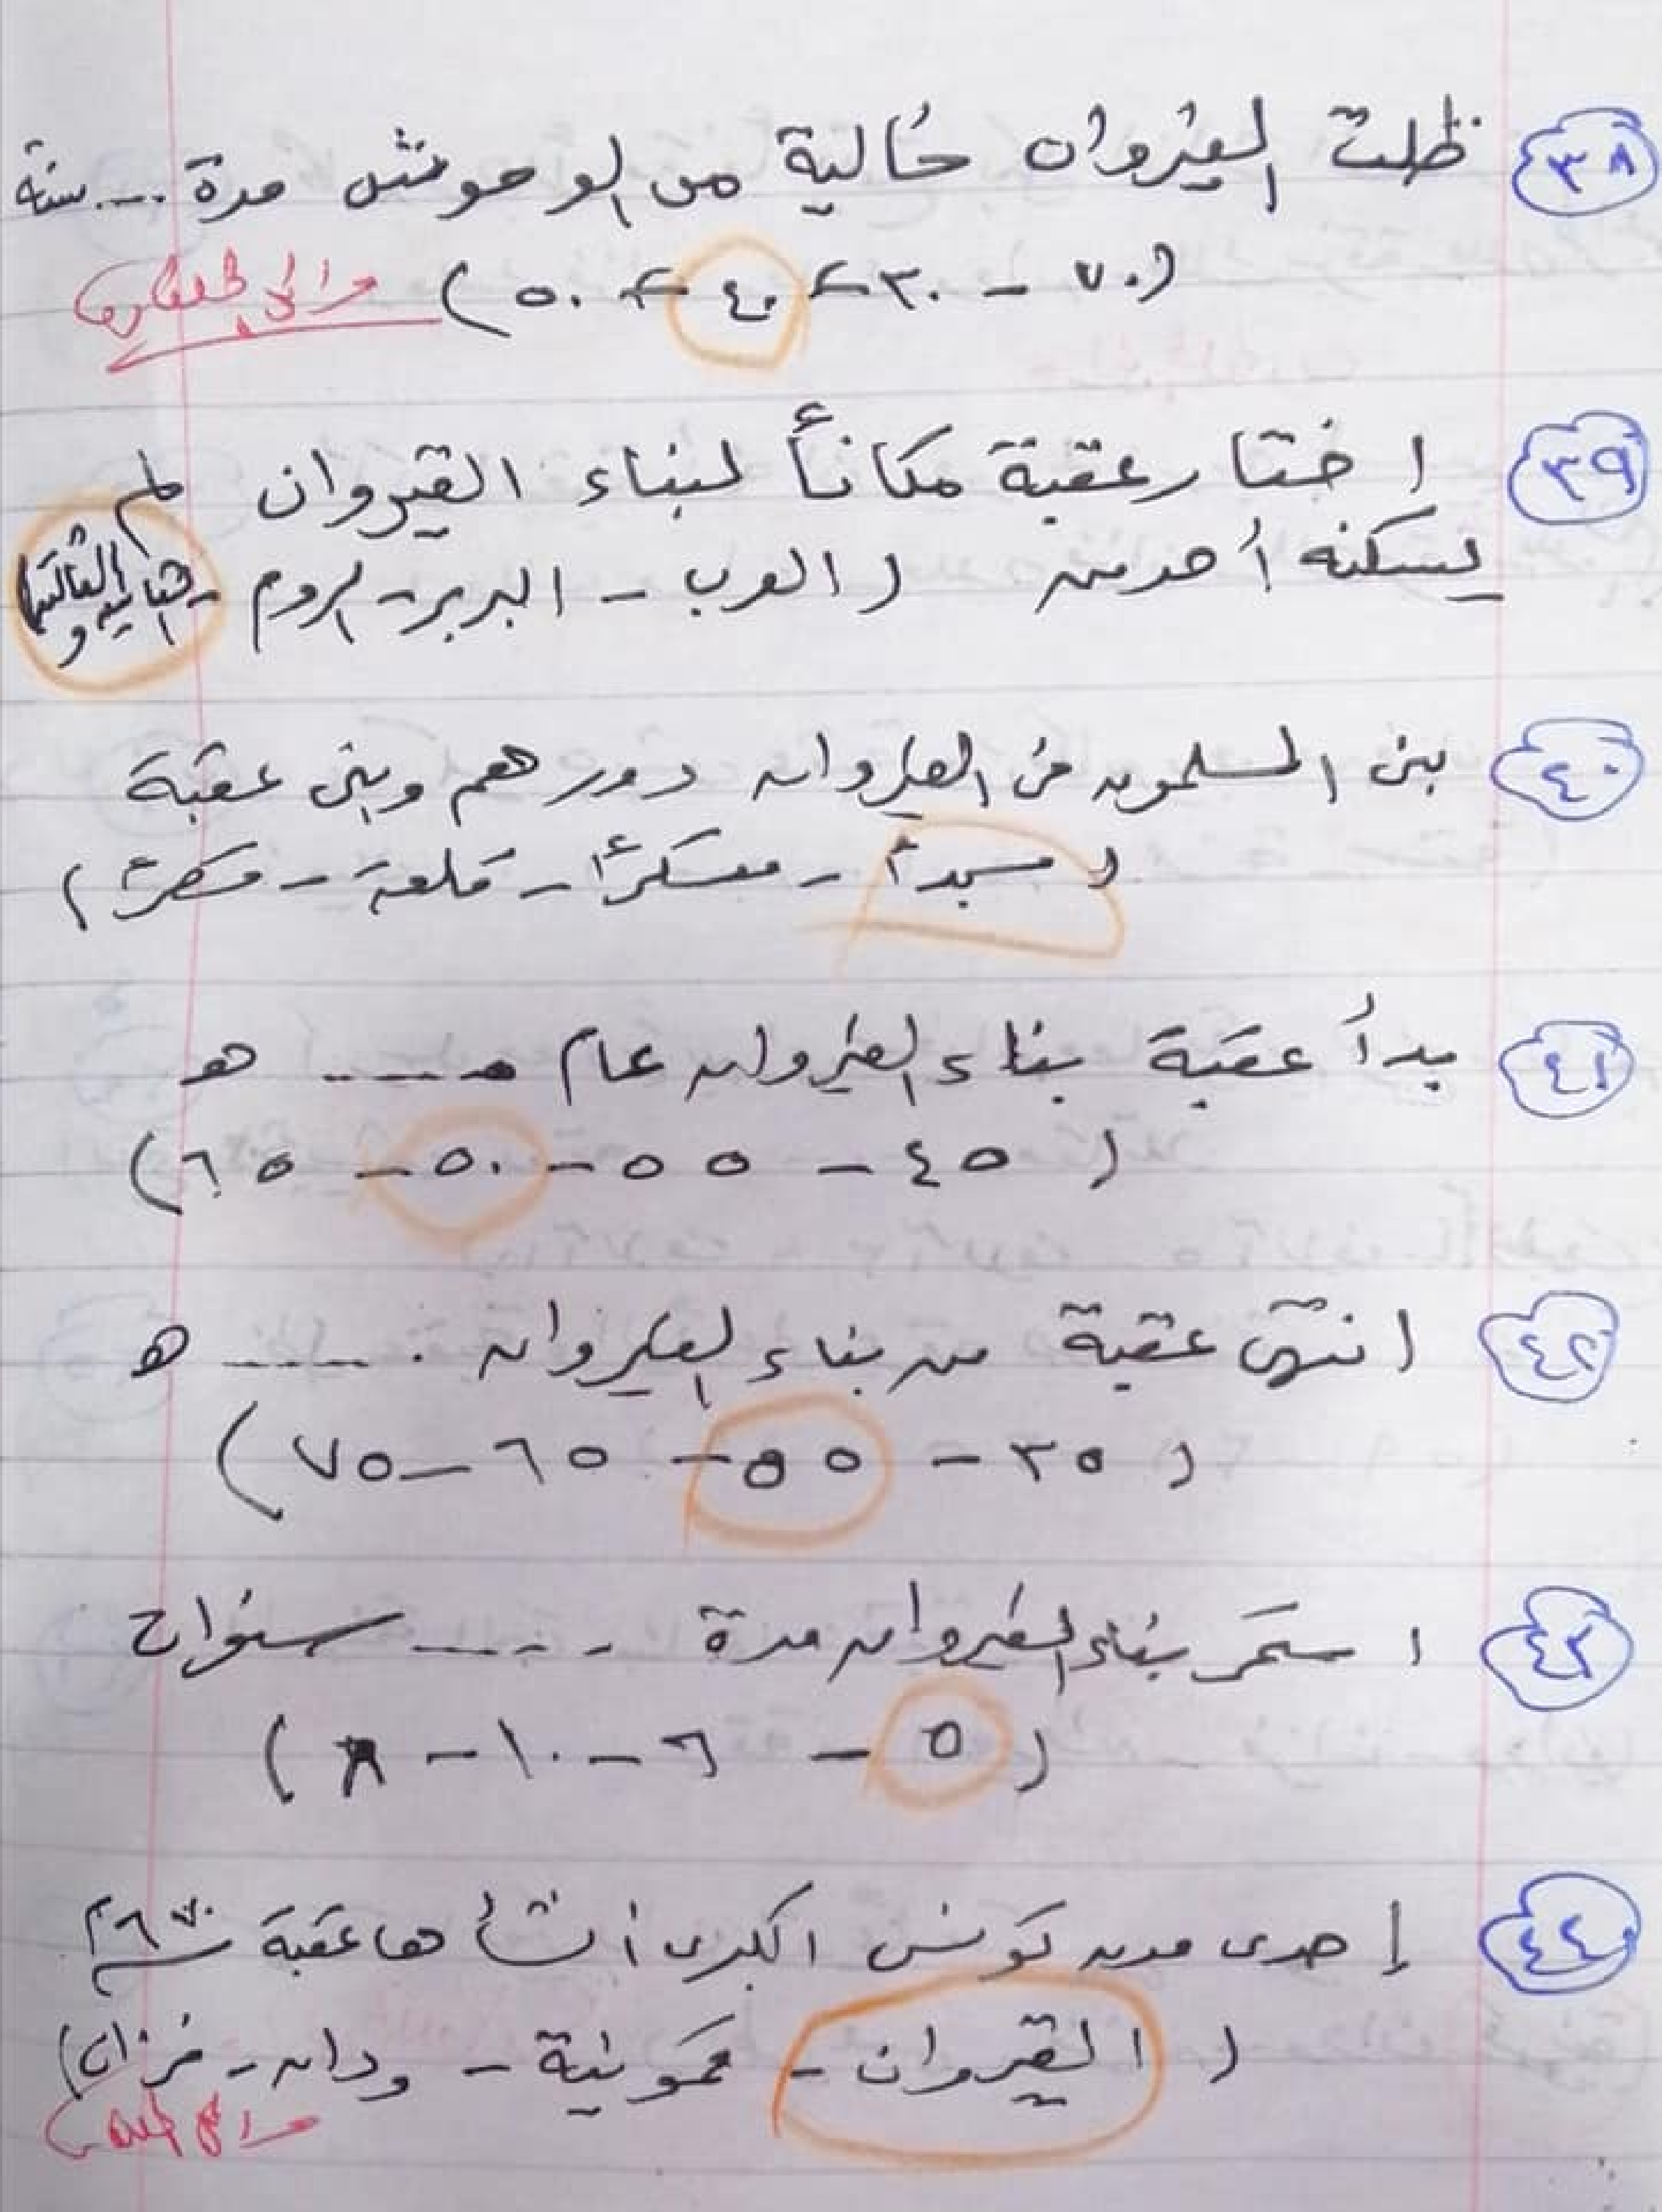 ٣٨ ظلت القيروان خالية من الوحوش مدة .... سنة
(٧٠ - ٣٠ - ٤٠ - ٥٠)
٣٩ اختار عقبة مكاناً لبناء القيروان لم
يسكنه أحد من (العرب - البربر - الروم -
٤٠ بنى المسلمون في القيروان دورهم وبنى عقبة
(مسجداً - معسكراً - قلعة - قصراً)
٤١ بدأ عقبة بناء القيروان عام ..... هـ
(٤٥ - ٥٥ - ٥٠ - ٦٥)
٤٢ انتهى عقبة من بناء القيروان ...... هـ
(٣٥ - ٥٥ - ٦٥ - ٧٥)
٤٣ استمر بناء القيروان مدة ..... سنوات
(٥ - ٦ - ١٠ - ٨)
٤٤ إحدى مدن تونس الكبرى أنشأها عقبة ٦٧٠م
(القيروان - قمونية - ودان - فزان)